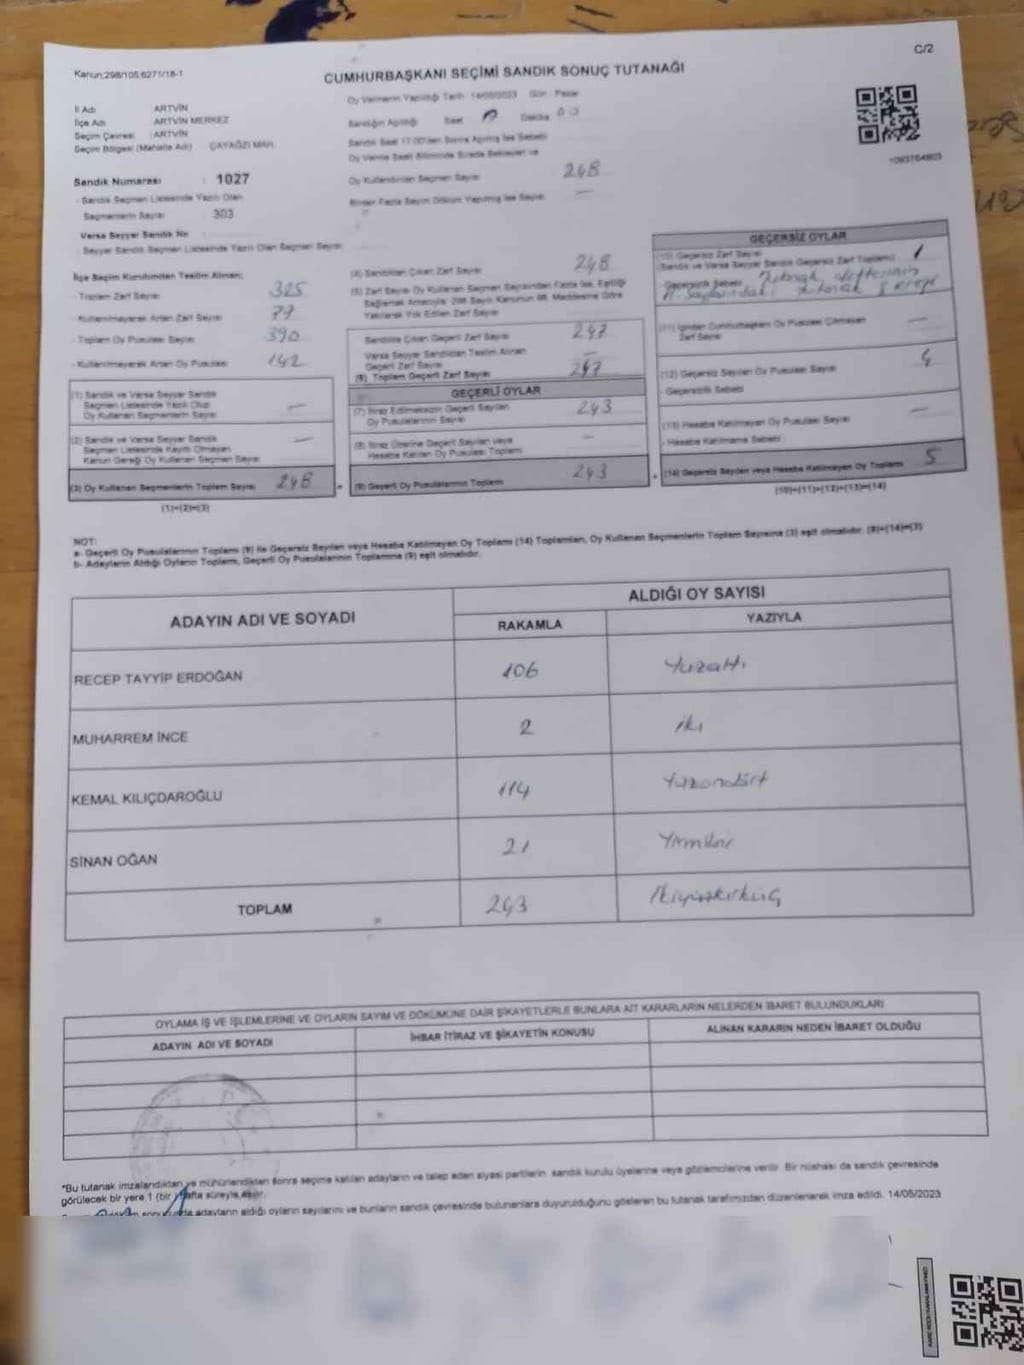 C/2
Kanun;298/105;6271/18-1
CUMHURBAŞKANI SEÇİMİ SANDIK SONUÇ TUTANAĞI
İl Adı ARTVİN
İlçe Adı ARTVİN MERKEZ
Seçim Çevresi : ARTVİN
Seçim Bölgesi (Mahalle Adı) ÇAYAĞZI MAH.
Sandık Numarası : 1027
- Sandık Seçmen Listesinde Yazılı Olan
Seçmenlerin Sayısı 303
Varsa Seyyar Sandık No
- Seyyar Sandık Seçmen Listesinde Yazılı Olan Seçmen Sayısı
Oy Vermenin Yapıldığı Tarih : 14/05/2023 Gün : Pazar
Sandığın Açıldığı Saat Dakika 00
Sandık Saat 17:00'den Sonra Açılmış İse Sebebi
Oy Verme Saati Bitiminde Sırada Bekleyen ve
Oy Kullandırılan Seçmen Sayısı 248
Birden Fazla Sayım Döküm Yapılmış İse Sayısı —
İlçe Seçim Kurulundan Teslim Alınan;
- Toplam Zarf Sayısı 325
- Kullanılmayarak Artan Zarf Sayısı 77
- Toplam Oy Pusulası Sayısı 390
- Kullanılmayarak Artan Oy Pusulası 142
(1) Sandık ve Varsa Seyyar Sandık
Seçmen Listesinde Yazılı Olup
Oy Kullanan Seçmenlerin Sayısı —
(2) Sandık ve Varsa Seyyar Sandık
Seçmen Listesinde Kayıtlı Olmayan
Kanun Gereği Oy Kullanan Seçmen Sayısı —
(3) Oy Kullanan Seçmenlerin Toplam Sayısı 248
(1)+(2)=(3)
(4) Sandıktan Çıkan Zarf Sayısı 248
(5) Zarf Sayısı Oy Kullanan Seçmen Sayısından Fazla İse, Eşitliği
Sağlamak Amacıyla 298 Sayılı Kanunun 98. Maddesine Göre
Yakılarak Yok Edilen Zarf Sayısı
Sandıkta Çıkan Geçerli Zarf Sayısı 247
Varsa Seyyar Sandıktan Teslim Alınan
Geçerli Zarf Sayısı —
(6) Toplam Geçerli Zarf Sayısı 247
GEÇERLİ OYLAR
(7) İtiraz Edilmeksizin Geçerli Sayılan
Oy Pusulalarının Sayısı 243
(8) İtiraz Üzerine Geçerli Sayılan veya
Hesaba Katılan Oy Pusulası Toplamı —
(9) Geçerli Oy Pusulalarının Toplamı 243
GEÇERSİZ OYLAR
(10) Geçersiz Zarf Sayısı 1
(Sandık ve Varsa Seyyar Sandık Geçersiz Zarf Toplamı)
- Geçersizlik Sebebi
(11) İçinden Cumhurbaşkanı Oy Pusulası Çıkmayan —
Zarf Sayısı
(12) Geçersiz Sayılan Oy Pusulası Sayısı 4
- Geçersizlik Sebebi
(13) Hesaba Katılmayan Oy Pusulası Sayısı —
- Hesaba Katılmama Sebebi
(14) Geçersiz Sayılan veya Hesaba Katılmayan Oy Toplamı 5
(10)+(11)+(12)+(13)=(14)
NOT:
a- Geçerli Oy Pusulalarının Toplamı (9) ile Geçersiz Sayılan veya Hesaba Katılmayan Oy Toplamı (14) Toplamları, Oy Kullanan Seçmenlerin Toplam Sayısına (3) eşit olmalıdır. (9)+(14)=(3)
b- Adayların Aldığı Oyların Toplamı, Geçerli Oy Pusulalarının Toplamına (9) eşit olmalıdır.
ADAYIN ADI VE SOYADI ALDIĞI OY SAYISI
RAKAMLA YAZIYLA
RECEP TAYYİP ERDOĞAN 106 Yüzaltı
MUHARREM İNCE 2 iki
KEMAL KILIÇDAROĞLU 114 Yüzondört
SİNAN OĞAN 21 Yirmibir
TOPLAM 243 İkiyüzkırküç
OYLAMA İŞ VE İŞLEMLERİNE VE OYLARIN SAYIM VE DÖKÜMÜNE DAİR ŞİKAYETLERLE BUNLARA AİT KARARLARIN NELERDEN İBARET BULUNDUKLARI
ADAYIN ADI VE SOYADI İHBAR İTİRAZ VE ŞİKAYETİN KONUSU ALINAN KARARIN NEDEN İBARET OLDUĞU
*Bu tutanak imzalandıktan ve mühürlendikten sonra seçime katılan adayların ve talep eden siyasi partilerin sandık kurulu üyelerine veya gözlemcilerine verilir. Bir nüshası da sandık çevresinde
görülecek bir yere 1 (bir) hafta süreyle asılır.
adayların aldığı oyların sayılarını ve bunların sandık çevresinde bulunanlara duyurulduğunu gösteren bu tutanak tarafımızdan düzenlenerek imza edildi. 14/05/2023